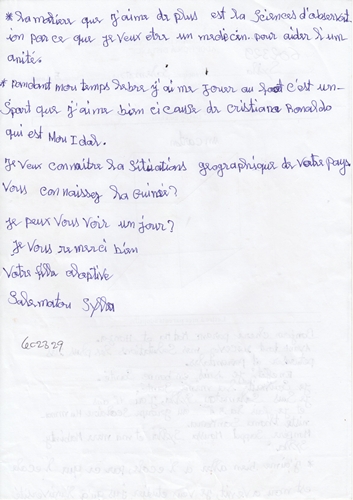 * La matière que j'aime de plus est la Sciences d'observat
ion parce que je veux être un médecin pour aider l'um
anité.
* Pendant mon temps libre j'aime Jouer au Foot c'est un
Sport que j'aime bien ci cause de cristiana Ronaldo
qui est Mon Idal.
Je veux connaître la Situations geographique de votre pays
Vous connaissez la Guinée?
Je peux Vous Voir un jour?
Je Vous remerci bien
Votre fille adaptive
Salematou Sylla
6c2329